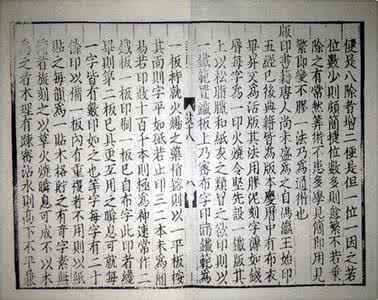 便是八除者增二便是但一位一因之若
位數少則頗簡捷位數多則愈繁不若乘
除之有常然筭術不患多學見簡即用見
繁即變不膠一法乃爲通術也
版印書籍唐人尚未盛爲之自馮瀛王始印
五經已後典籍皆爲版本慶曆中有布衣
畢昇又爲活版其法用膠泥刻字薄如錢
脣每字爲一印火燒令堅先設一鐵版其
上以松脂臘和紙灰之類冒之欲印則以
一鐵範置鐵板上乃密布字印滿鐵範爲
十八
八
一板持就火煬之藥稍鎔則以一平板按
其面則字平如砥若止印三二本未爲簡
易若印數十百千本則極爲神速常作二
鐵板一板印刷一板已自布字此印者纔
畢則第二板已具更互用之瞬息可就每
一字皆有數印如之也等字每字有二十
餘印以備一板內有重複者不用則以紙
貼之每韻爲一貼木格貯之有奇字素無
備者旋刻之以草火燒瞬息可成不以木
爲之者木理有踈密沾水則高下不平兼